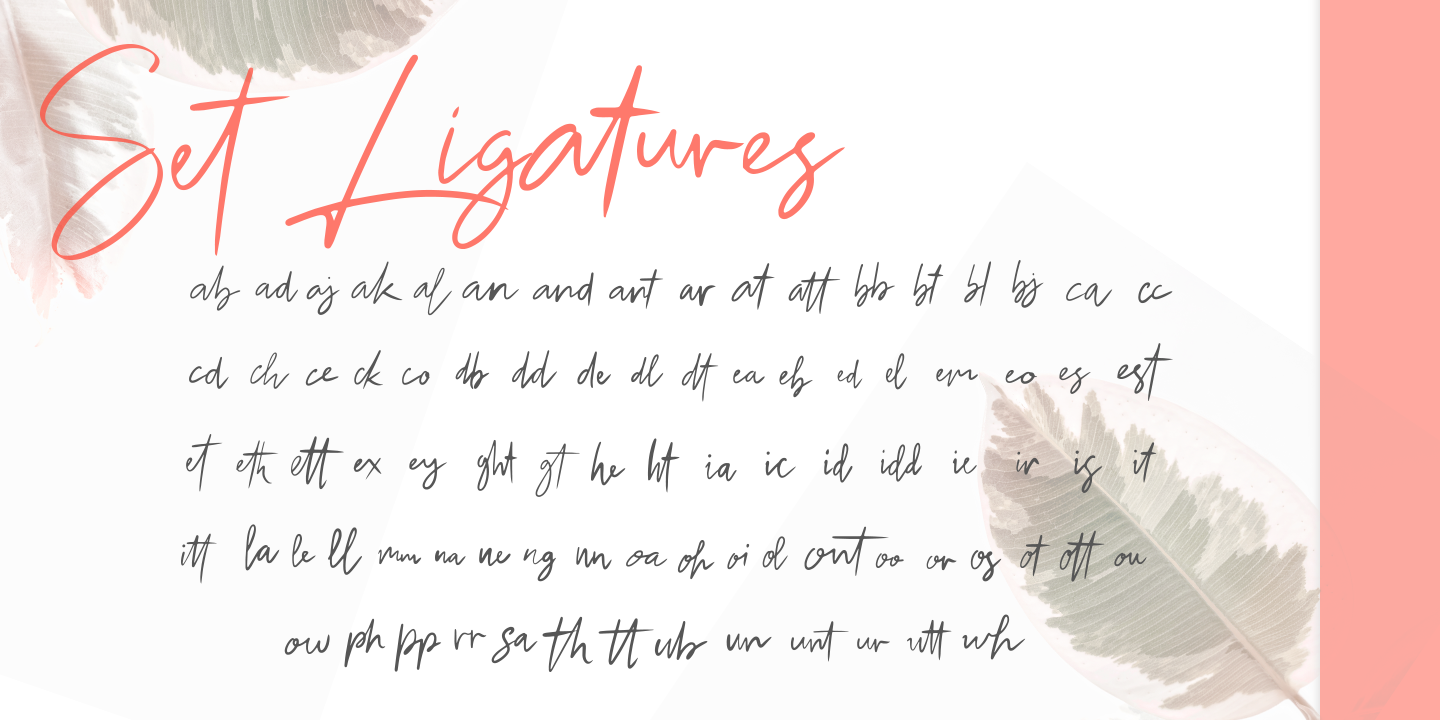 Set Ligatures
ab ad aj ak al an and ant ar at att bb bt bl bj ca cc
cd ch ce ck co db dd de dl dt ea eb ed el em eo es est
et eth ett ex ey ght gt he ht ia ic id idd ie ir is it
itt la le ll mm na ne ng nn oa oh oi ol ont oo or os ot ott ou
ow ph pp rr sa th tt ub un unt ur utt wh